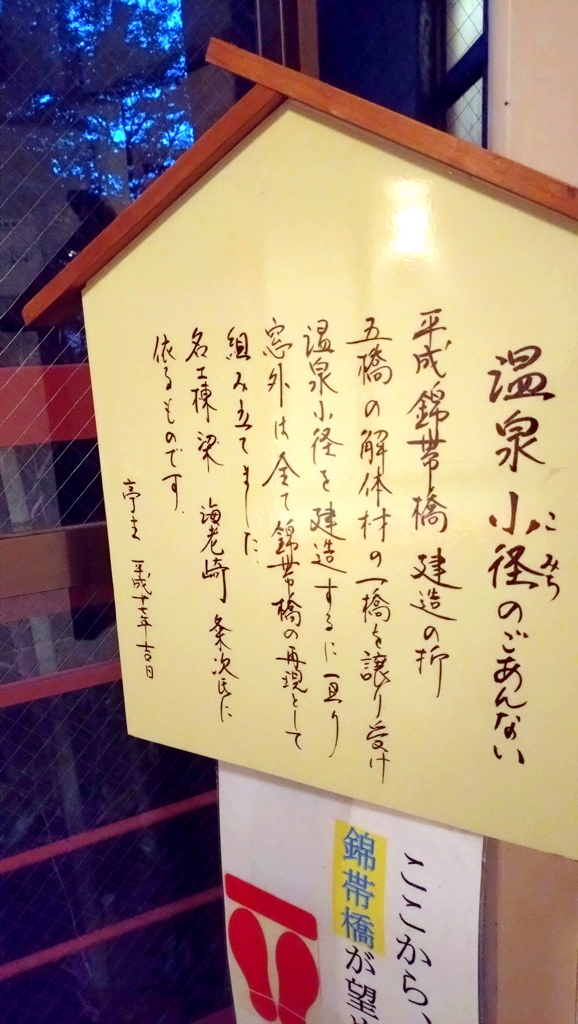 温泉小径のごあんない
こみち
平成錦帯橋建造の折
五橋の解体材の一橋を譲り受け
温泉小径を建造するに亘り
窓外は全て錦帯橋の再現として
組み立てました。
名工棟梁 海老崎 粂次氏に
依るものです。
亭主 平成十七年吉日
ここから、
錦帯橋が望め